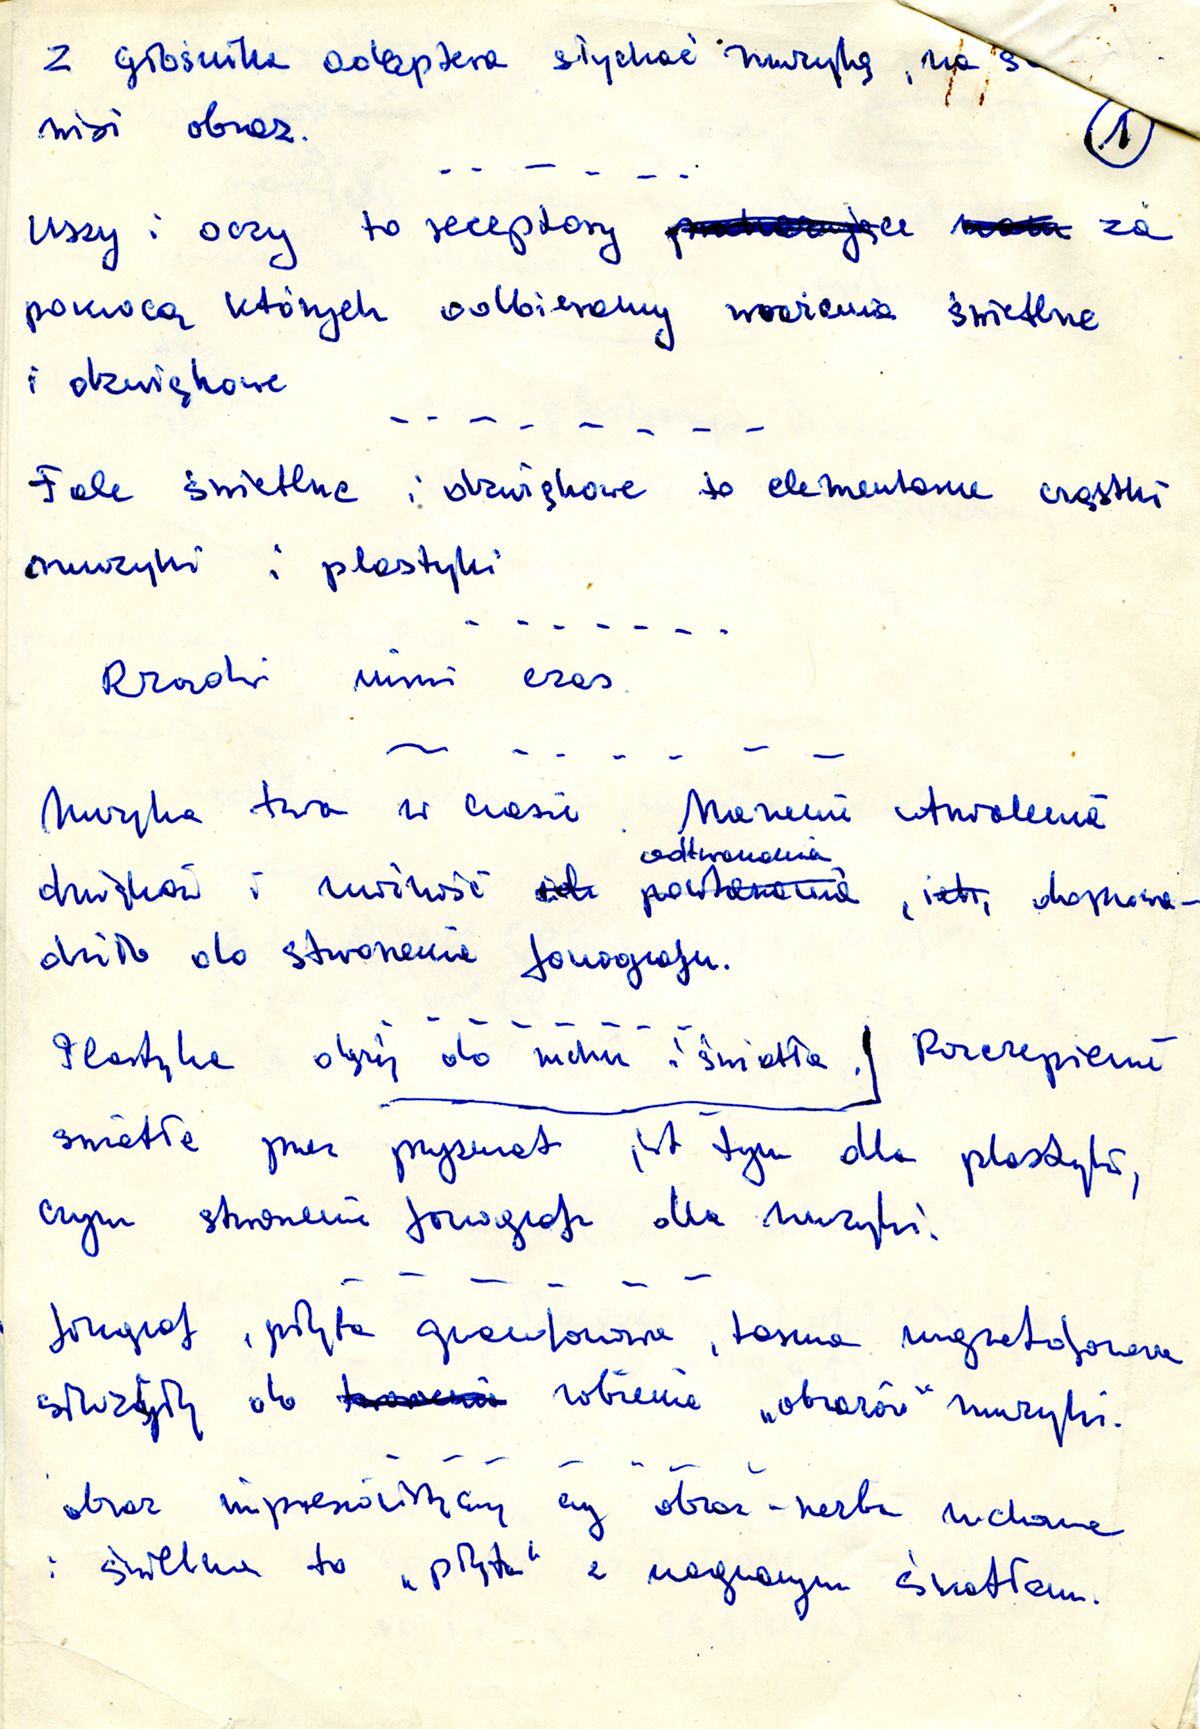 Z głośnika adaptera słychać muzykę, na
wisi obraz.
1
Uszy i oczy to receptory za
pomocą których odbieramy wrażenia świetlne
i dźwiękowe
Fale świetlne i dźwiękowe to elementarne cząstki
muzyki i plastyki
Rządzi nimi czas.
Muzyka trwa w czasie. Marzenie utrwalenia
odtwarzania
dźwięków i możność ich powtarzania, doprowa-
dziło do stworzenia fonografu.
Plastyka dąży do ruchu i światła. Rozczepienie
światła przez pryzmat jest tym dla plastyki,
czym stworzenie fonografu dla muzyki.
fonograf, płyta gramofonowa, taśma magnetofonowa
służyły do robienia „obrazów” muzyki.
obraz impresjonistyczny czy obraz-rzeźba ruchoma
i świetlna to „płyta” z nagranym światłem.